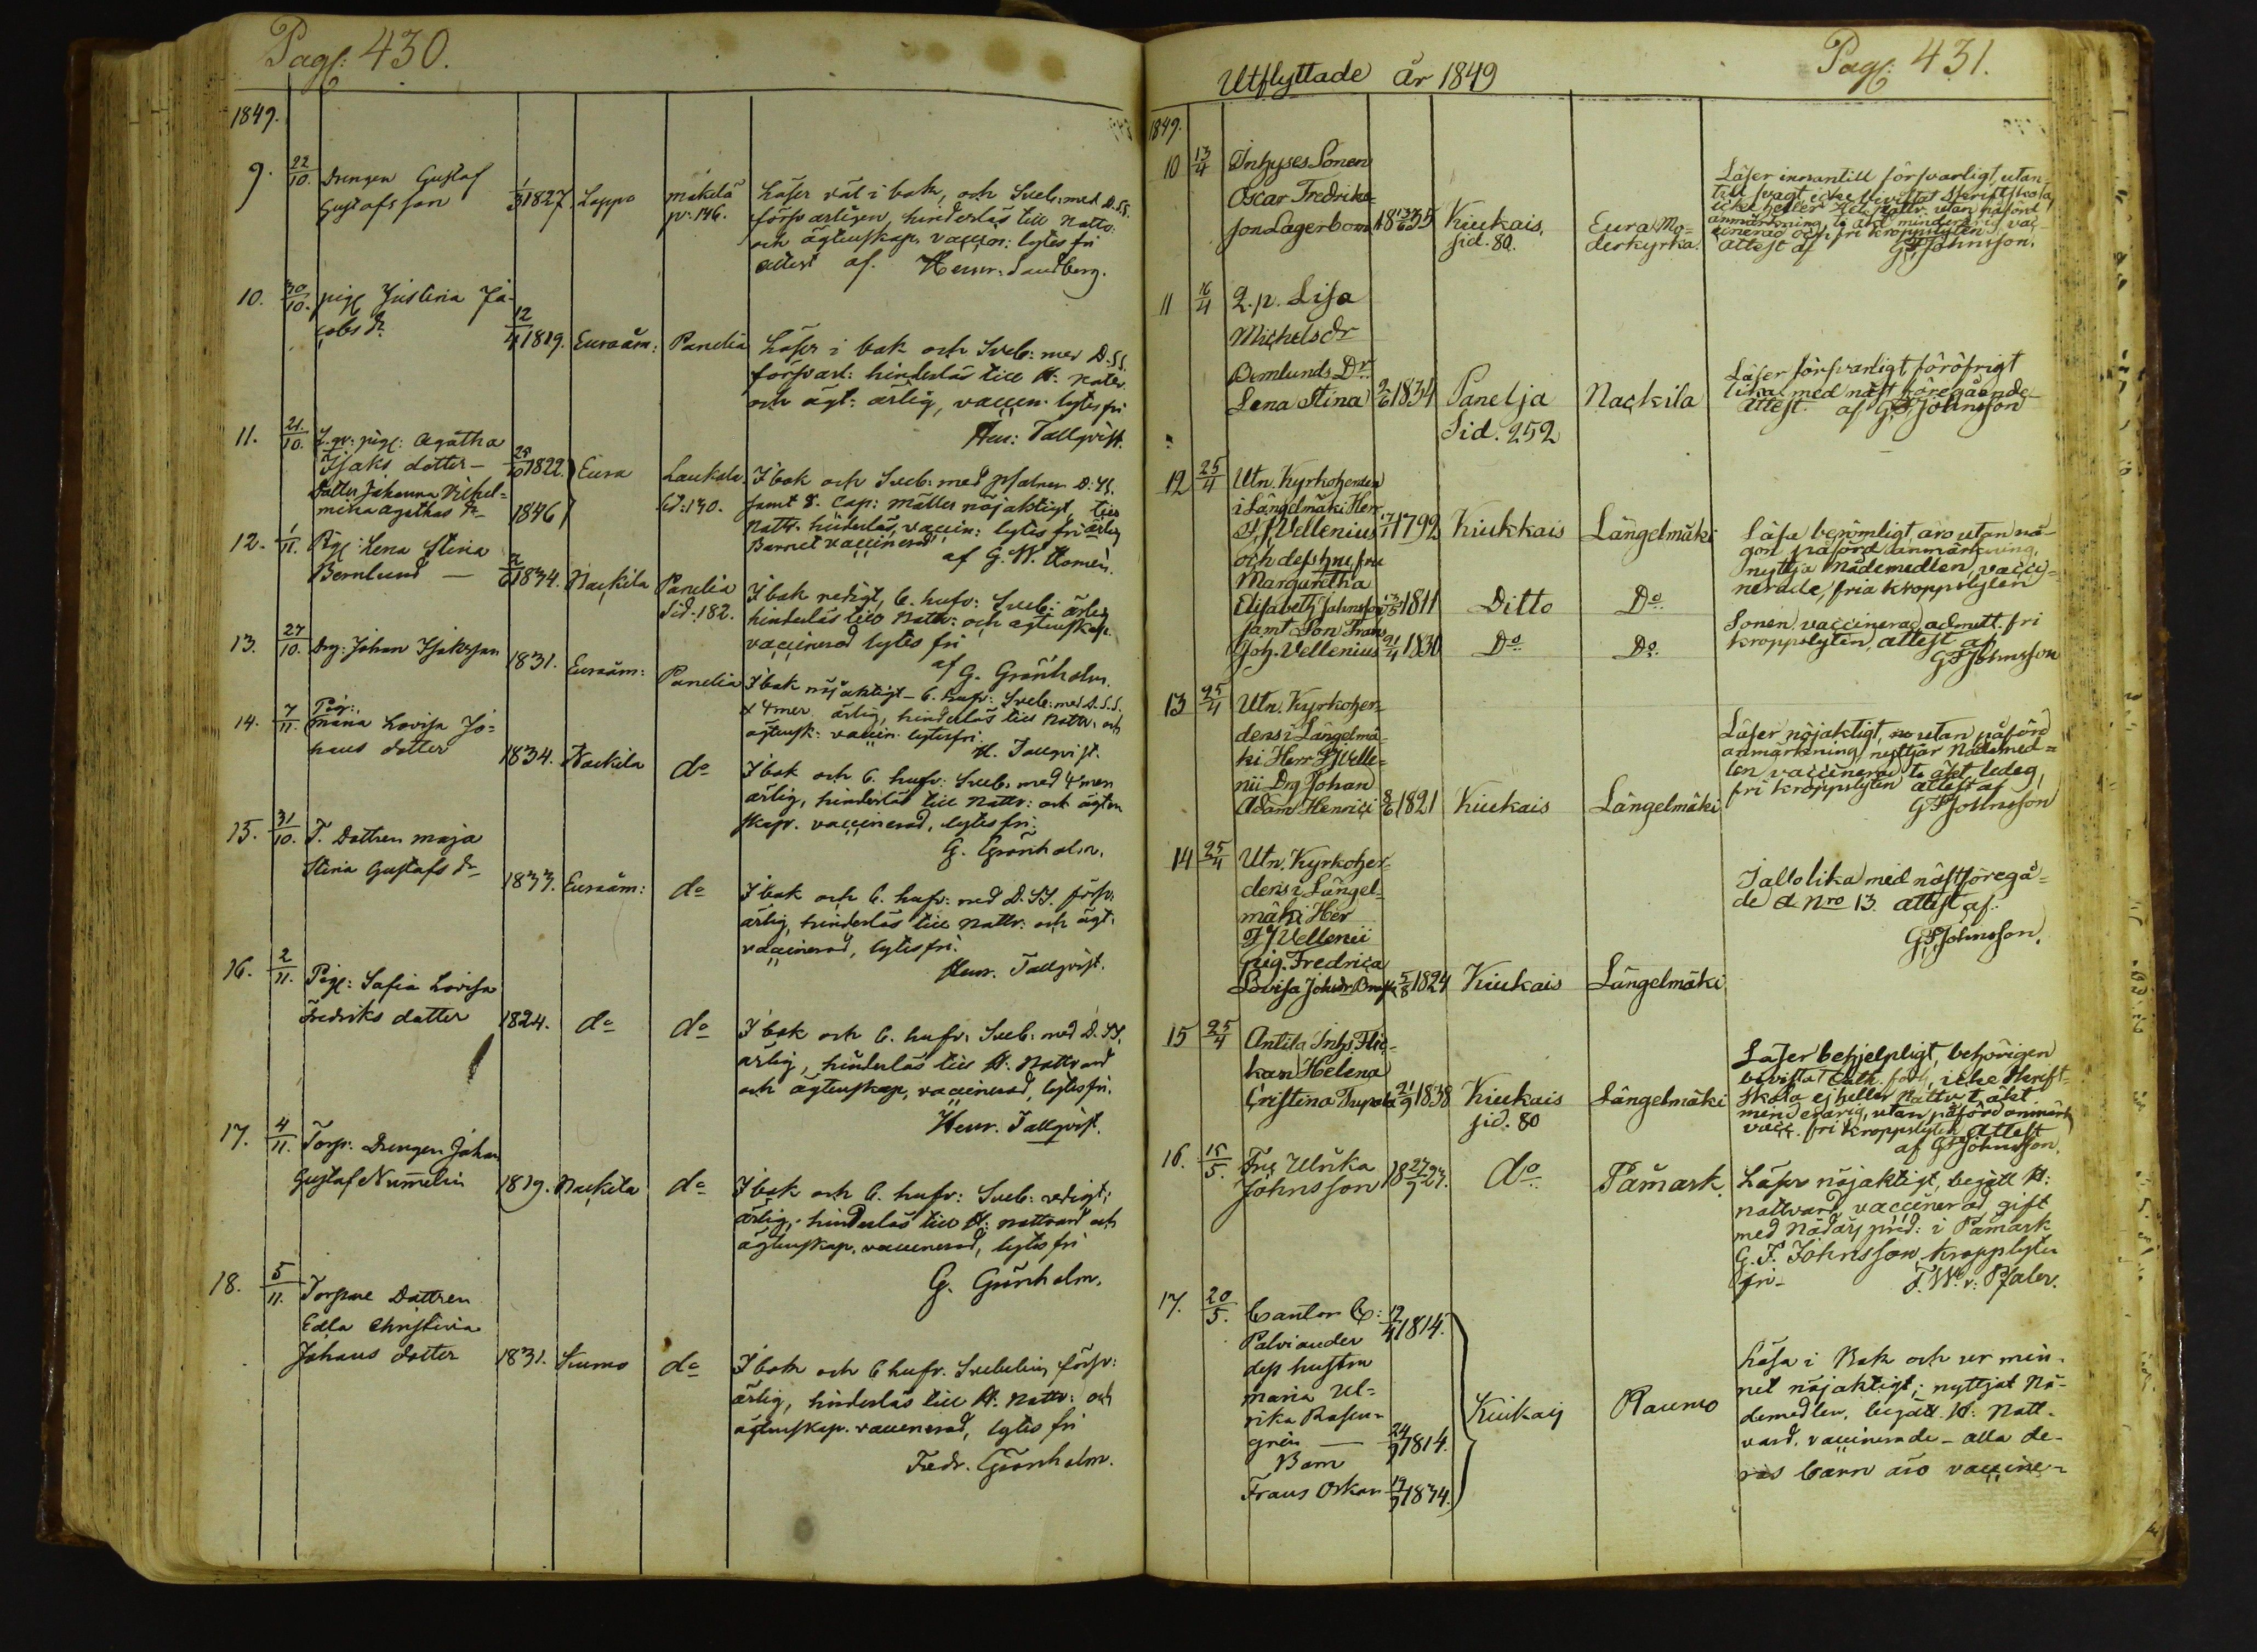 Pag: 430.
1849.
9. 22/10. Drengen Gustaf
Gustafsson 1827. Lappo Mäkelä
p: 146.
Läser väl i bok, och Sveb: med D.SS.
försvarligen, hinderlös till Nattv:
och ägtenskap, vaccin: lytes fri
attest af. Henr: Sandberg.
10. 30/10. pig: Justina Ja-
cobs dr 12/4 1819. Euraåm: Panelia
Läser i bok och Sveb: med D.SS.
försvarl: hinderlös till H: Nattv
och ägt: ärlig, vaccin. lytes fri
Hen: Tallqvist.
11. 21/10. pig: Agatha
Isaks dotter – 25/10 1822 Eura Laukola.
Sid: 190.
Dotter Johanna Vilhel-
mina Agathas dr 1846
I bok och Sveb: med psalmer D.SS.
samt 8. Cap: Mattei nöjaktigt, till
Nattv. hinderlös, vaccin: lytes fri ärlig
Barnet vaccinerad
af G. W. Homén.
12. 1/11. Pig: Lena Stina
Bernlund — 2/6 1834. Nackila Panelia
Sid: 182.
I bok redigt, C. hufv: Sveb: ärlig
hinderlös till Nattv: och ägtenskap.
vaccinerad lytes fri
af G. Grönholm.
13. 27/10. Drg: Johan Isaksson
1831. Euraåm: Panelia
I bok nöjaktigt – C. hufv: Sveb: med D.S.S.
& 4mer ärlig, hinderlös till Nattv: och
ägtensk: vaccin. lytesfri.
H. Tallqvist.
14. 7/11. Pig:
Maria Lovisa Jo-
hans dotter 1834. Nackila do
I bok och C. hufv: Sveb: med 4 mer
ärlig, hinderlös till Nattv: och ägten
skap. vaccinerad, lytes fri
G. Grönholm.
15. 31/10. T. Dottren Maja
Stina Gustafs dr 1833. Euraåm: do
I bok och C. hufv: med D.SS. försv:
ärlig, hinderlös till Nattv: och ägt:
vaccinerad, lytes fri.
Henr. Tallqvist.
16. 2/11. Pig: Safia Lovisa
Fredriks dotter 1824. do do
I bok och C. hufv: Sveb: med D.SS.
ärlig, hinderlös till H. Nattvard
och ägtenskap, vaccinerad, lytes fri.
Henr. Tallqvist.
17. 4/11. Torp: Drengen Johan
Gustaf Numelin 1819. Nackila do
I bok och C. hufv: Sveb: redigt;
ärlig, hinderlös till H: nattvard och
ägtenskap. vaccinerad, lytes fri
G. Grönholm.
18. 5/11. Torpare Dottren
Edla Christina
Johans dotter 1831. Kumo do
I bok och C hufv. Svebelius försv:
ärlig, hinderlös till H. Nattv: och
ägtenskap. vaccinerad, lytes fri
Fredr. Grönholm.
Utflyttade år 1849
Pag: 431.
1849.
10 13/4 Inhyses Sonen
Oscar Fredriks-
son Lagerbom 1835 Kiukais,
sid. 80. Eura Mo-
derkyrka.
Läser innantill försvarligt, utan-
till svagt, icke bivistat Skriftskola,
icke heller H. Nattv. utan påförd
anmärkning, to äkt. minderårig vac-
cinerad och fri kroppslyten
attest af G.F.Johnsson.
11 16/4 Q.p. Lisa
Michelsdr
Bernlunds Dr
Lena Stina 2/6 1834 Panelja
Sid. 252 Nackila
Läser försvarligt, föröfrigt
lika med näst föregående
attest af G.F.Johnsson
12 25/4 Utn. Kyrkoherden
i Längelmäki Herr
F.J.Vellenius 17/7 1792 Kiukkais Längelmäki
och dess hu, fru
Margaretha
Elisabeth Johnsson 1811 Ditto Do
samt Son Frans
Joh. Vellenius 21/4 1830 Do Do.
Läsa berömligt, äro utan nå-
gon påförd anmärkning,
nyttja Nådemedlen, vacci-
nerade, fria kroppslyten
Sonen vaccinerad admitt. fri
kroppslyten, attest af
G.F.Johnsson
13 25/4 Utn. Kyrkoher-
dens i Längelmä-
ki Herr F.J.Velle-
nii Drg Johan
Adam Henrici 8/6 1821 Kiukais Längelmäki
Läser nöjaktigt, utan påförd
anmärkning, nyttjar Nådemed-
len vaccinerad to äkt. ledig,
fri kroppslyten attest af
G.F.Johnsson
14 25/4 Utn. Kyrkoher-
dens i Längel-
mäki Her
F.J.Vellenii
pig. Fredrica
Lovisa Johsdr 5/8 1824 Kiukais Längelmäki
I allo lika med nästföregå-
de d. Nro 13. attest af.
G.F.Johnsson.
15 25/4 Antila Inhs Flic-
kan Helena
Cristina Trepola 21/9 1838 Kiukais
sid. 80 Längelmäki
Läser behjelpligt, behörigen
bivistat Cath. förh, icke Skrift-
skola ej heller Nattv. t. äkt
minderårig, utan påförd anmärk
vacc. fri kroppslyten attest
af G.F.Johnsson.
16. 15/5. Fru Ulrika
Johnsson 18 27/9 27. do Påmark.
Läser nöjaktigt, begått H:
nattvard, vaccinerad gift
med Nådårs pred: i Påmark
G. F. Johnsson kroppslyten
fri – F. W. v: Pfaler.
17. 20/5. Cantor C: 12/4 1814.
Palviander
dess hustru
Maria Ul-
rika Rosen-
grén — 24/9 1814.
Barn
Frans Oskar 19/9 1834.
Kiukais Raumo
Läsa i Bok och ur min-
net nöjaktigt; nyttjat Nå-
demedlen, begått H: Natt-
vard, vaccinerade – alla de-
ras barn äro vaccine-